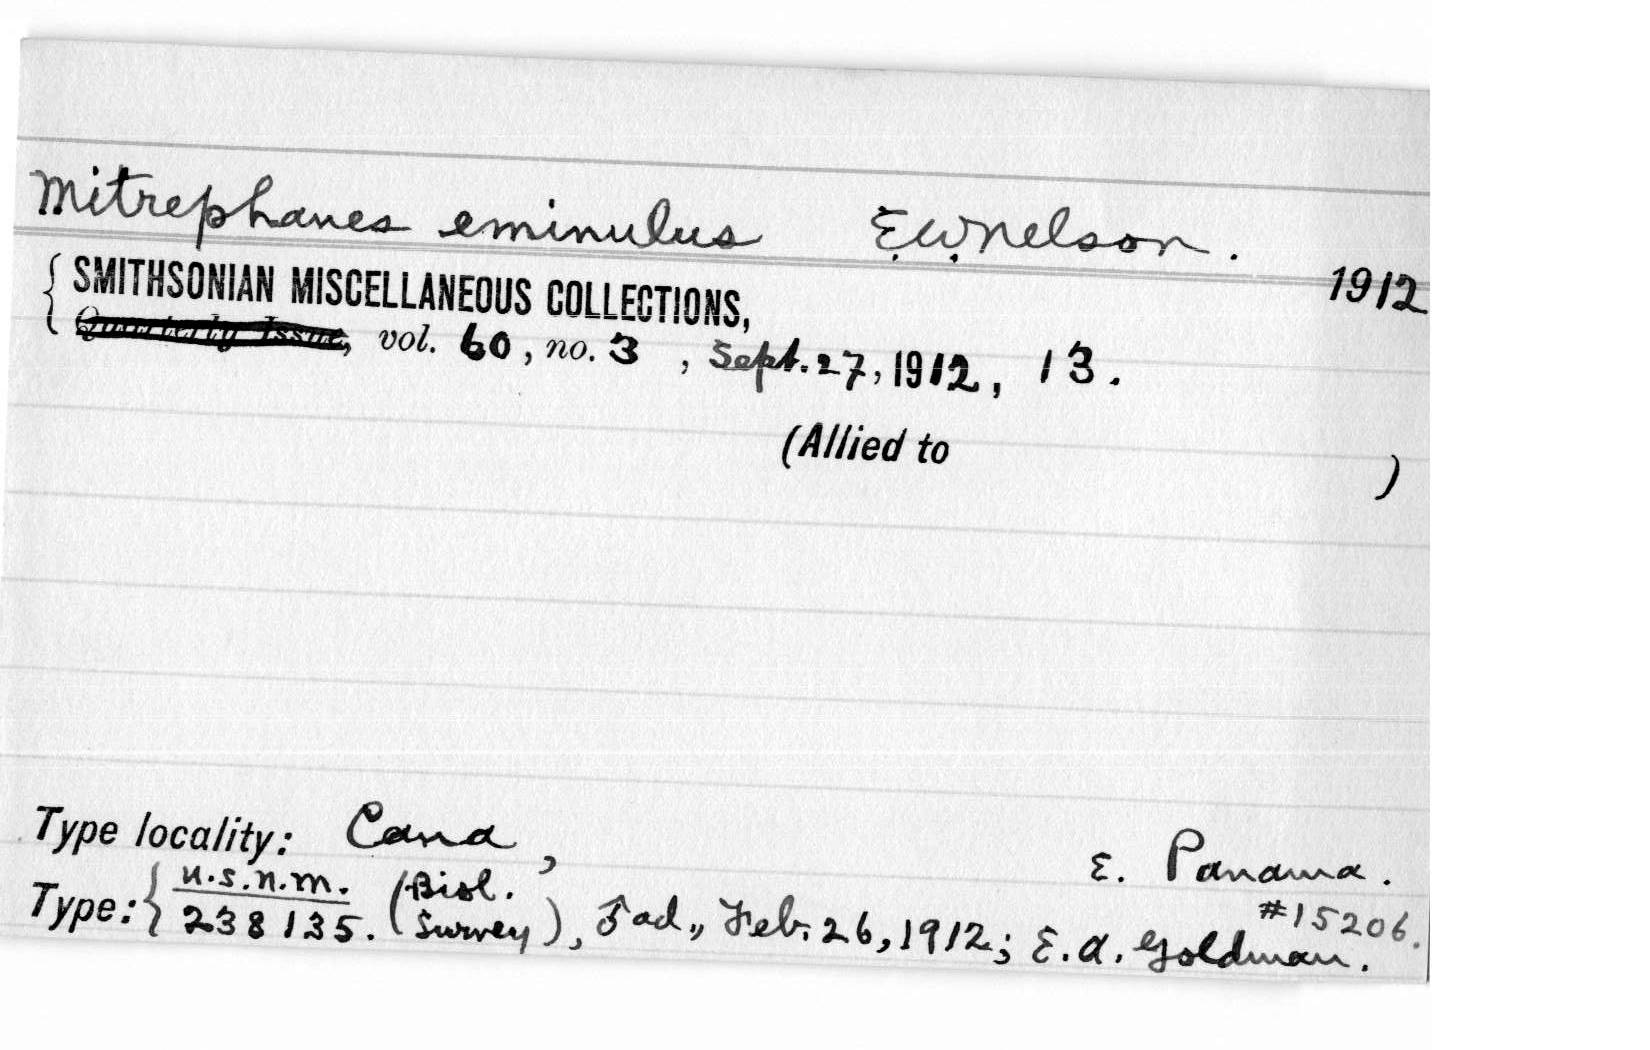 Mitrephanes eminulus E.W. Nelson.
1912
{ SMITHSONIAN MISCELLANEOUS COLLECTIONS,
Quarterly Issue, vol. 60, no. 3, Sept. 27, 1912, 13.
(Allied to )
Type locality: Cana, E. Panama.
Type: { U.S.N.M. 238135. (Biol. Survey), ♂ ad., Feb. 26, 1912; E.A. Goldman.
#15206.